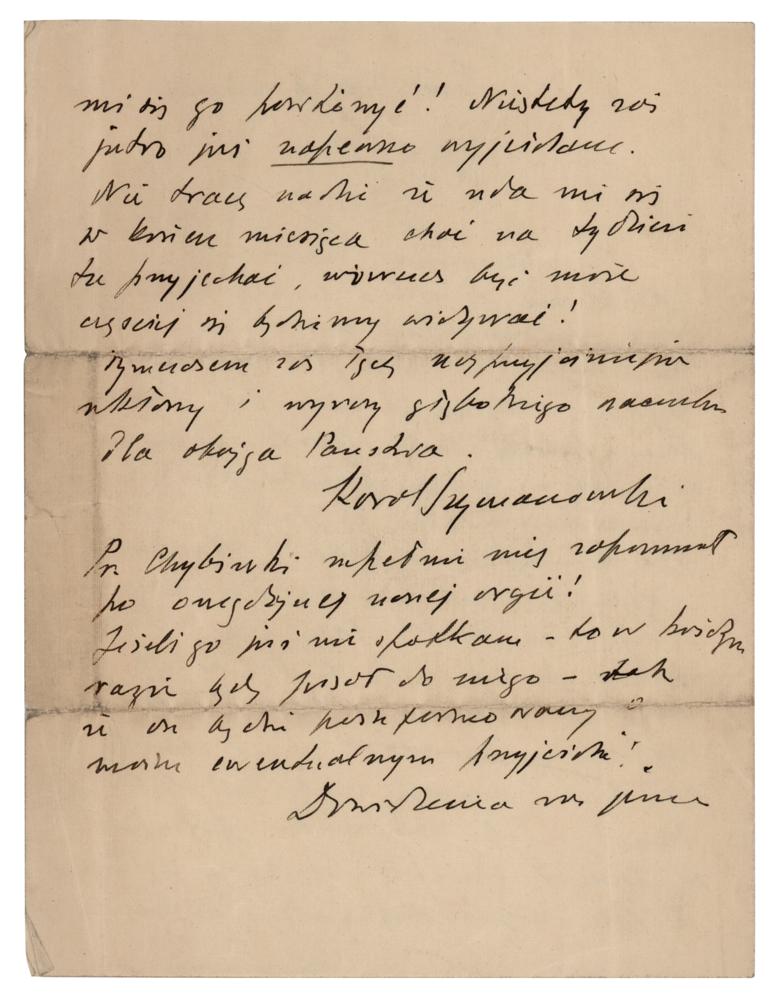 mi się go powtórzyć! Niestety zaś
jutro już napewno wyjeżdżam.
Nie tracę nadziei że uda mi się
w końcu miesiąca choć na tydzień
tu przyjechać, wówczas być może
częściej się będziemy widywać!
Tymczasem zaś łączę najprzyjaźniejsze
ukłony i wyrazy głębokiego szacunku
dla obojga Państwa.
Karol Szymanowski
Pr. Chybiński zupełnie mię zapomniał
po onegdajszej naszej orgii!
Jeżeli go już nie spotkam – to w każdym
razie będę pisał do niego – tak
że on będzie poinformowany o
moim ewentualnym przyjeździe!
Dowidzenia raz jeszcze